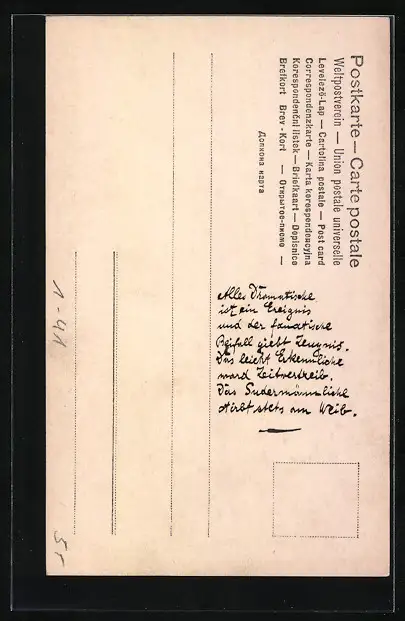 Postkarte — Carte postale
Weltpostverein — Union postale universelle
Levelező-Lap — Cartolina postale — Post card
Correspondenzkarte — Karta korespondencyjna
Korespondenční lístek — Briefkaart — Dopisnice
Brefkort Brev-Kort — Открытое-письмо —
Допкона карта
Alles Dramatische
ist ein Ereignis
und der fanatische
Beifall giebt Zeugnis.
Das leicht Erkennliche
ward Zeitvertreib.
Das Sudermännliche
stirbt stets am Weib.
1-41